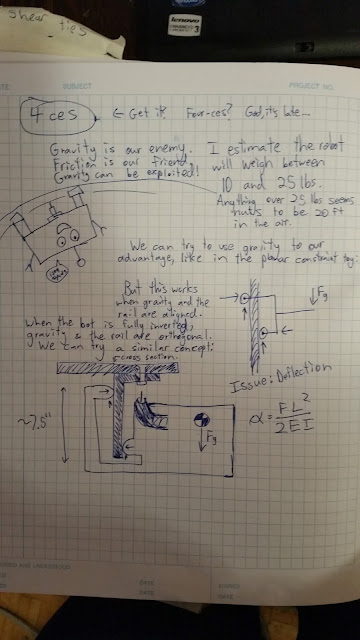 shear ties
lenovo
3
SUBJECT
PROJECT NO.
4 ces
← Get it? Four-ces? God, it's late...
Gravity is our enemy.
Friction is our friend.
Gravity can be exploited!
I estimate the robot
will weigh between
10 and 25 lbs.
Anything over 25 lbs seems
nuts to be 20 ft
in the air.
We can try to use gravity to our
advantage, like in the planar constraint toy:
But this works
when gravity and the
rail are aligned.
When the bot is fully inverted,
gravity & the rail are orthogonal.
We can try a similar concept:
Fg
← cross section.
Issue: Deflection
~7.5"
Fg
α = FL²/2EI
DATE
DATE
SIGNED
DATE